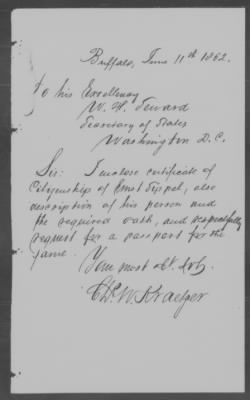 Buffalo, June 11th 1862.
To his Excellency
W. H. Seward
Secretary of States
Washington D. C.
Sir: I enclose certificate of
citizenship of Ernst Tippel, also
description of his person and
the required oath, and respectfully
request for a passport for the
same.
Your most obt. svt.
Chs. W. Kraetzer